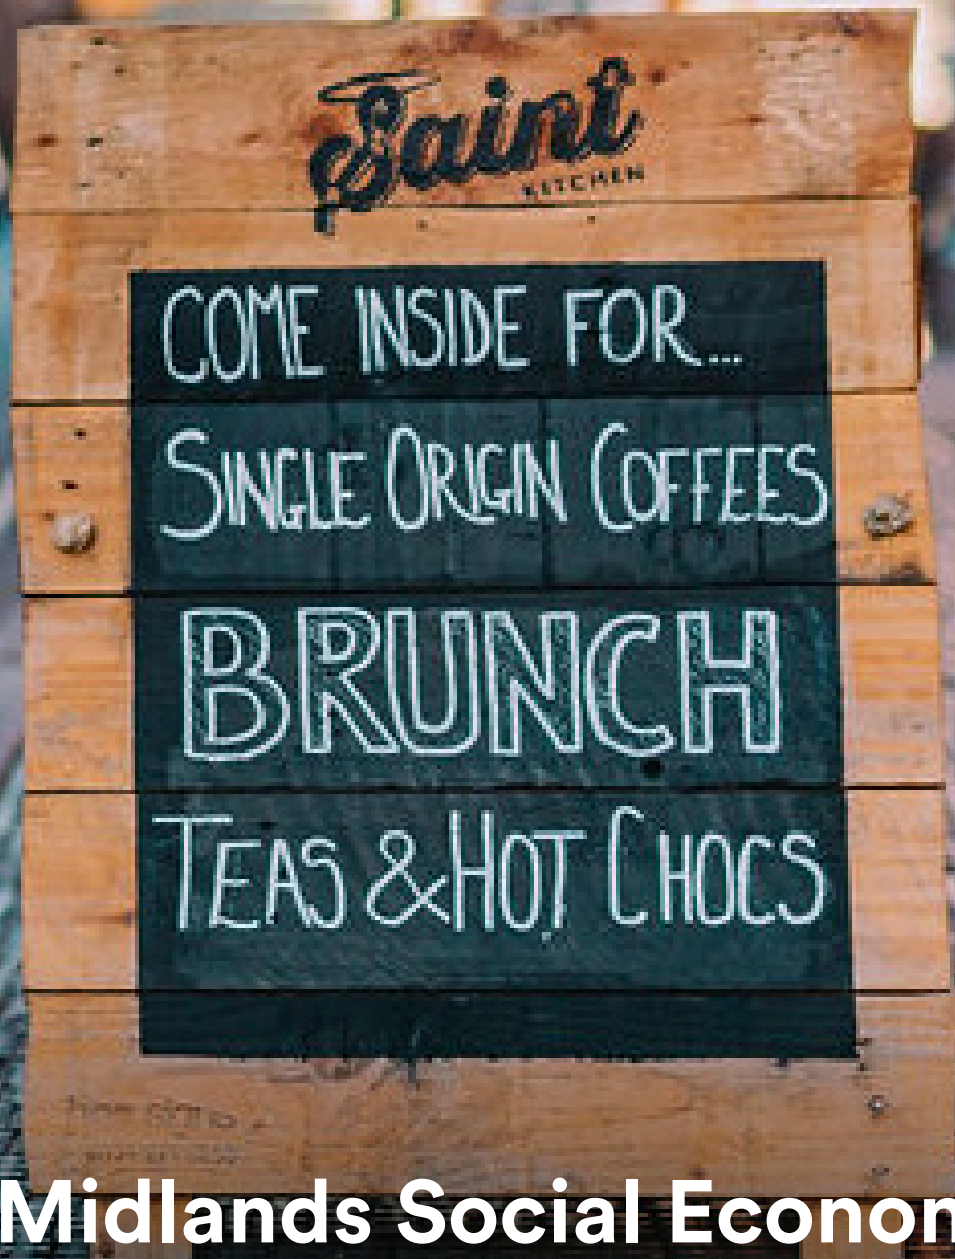 Saint
KITCHEN
COME INSIDE FOR...
SINGLE ORIGIN COFFEES
BRUNCH
TEAS & HOT CHOCS
Midlands Social Econom